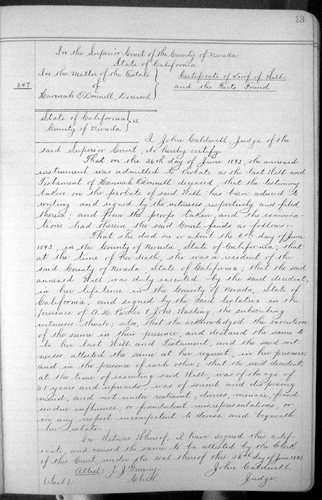 13
In the Superior Court of the County of Nevada
State of California
In the Matter of the Estate
of
Hannah O'Donnell, Deceased
647
Certificate of Proof of Will
and the Facts Found
State of California
County of Nevada } ss
I, John Caldwell, Judge of the
said Superior Court, do hereby certify
That on the 26th day of June 1893, the annexed
instrument was admitted to Probate as the last Will and
Testament of Hannah O'Donnell deceased, that the testimony
taken on the probate of said Will has been reduced to
writing and signed by the witnesses respectively and filed
therein; and from the proofs taken, and the examina-
tions had therein, the said Court finds as follows:
That she died on or about the day of June
1893, in the County of Nevada, State of California, that
at the time of her death, she was a resident of the
said County of Nevada State of California; that the said
annexed Will was duly executed by the said decedent,
in her life time in the County of Nevada, State of
California, and signed by the said testatrix in the
presence of A. Parker & John the subscribing
witnesses thereto; also that she acknowledged the execution
of the same in their presence, and declared the same to
be her last Will and Testament, and the said wit-
nesses attested the same at her request, in her presence
and in the presence of each other; that the said decedent
at the time of executing said Will, was of the age of
21 years and upwards, was of sound and disposing
mind, and not under restraint, duress, menace, fraud
undue influence, or fraudulent misrepresentations, or
in any respect incompetent to devise and bequeath
her estate.
In Witness Whereof, I have signed this certif-
icate, and caused the same to be attested by the Clerk
of this Court under the seal thereof this 26th day of June 1893
Attest: J. J. Greany John Caldwell,
(Seal) Clerk Judge